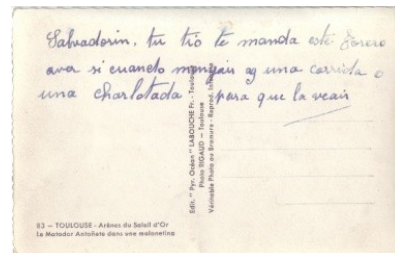 Salvadorin, tu tio te manda este Torero
aver si cuando vengais ay una corrida o
una charlotada para que la veais
Edit. "Pyr. Océan" LABOUCHE Fr. - Toulouse
Photo RIGAUD - Toulouse
Véritable Photo au Bromure - Reprod. Inter
83 - TOULOUSE - Arènes du Soleil d'Or
Le Matador Antoñete dans une